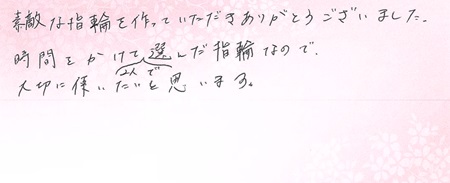 素敵な指輪を作っていただきありがとうございました。
時間をかけて選んだ指輪なので、
二人で
大切に使いたいと思います。